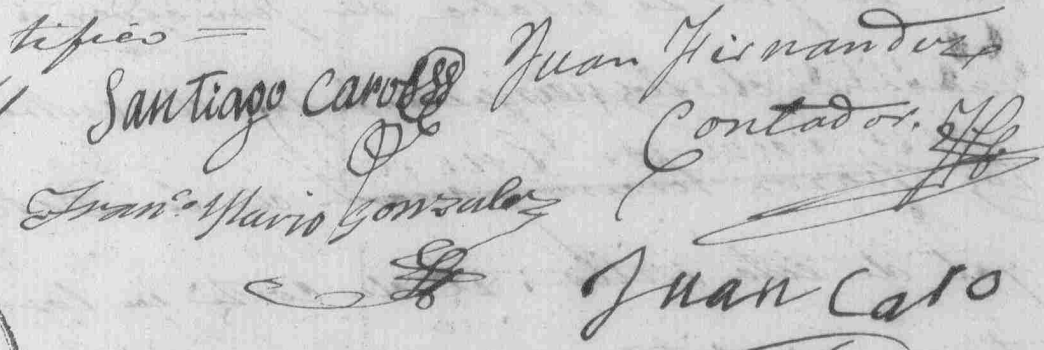 tifico =
Santiago Caro
Juan Fernandez
Contador.
Fran.co Mario Gonzalez
Juan Caro